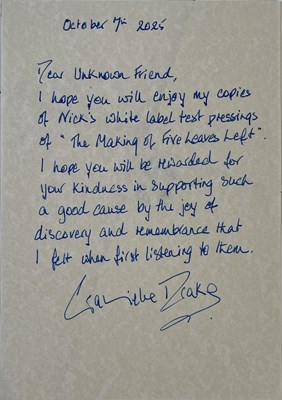 October 7th 2025
Dear Unknown Friend,
I hope you will enjoy my copies
of Nick's white label test pressings
of "The Making of Five Leaves Left".
I hope you will be rewarded for
your kindness in supporting such
a good cause by the joy of
discovery and remembrance that
I felt when first listening to them.
Gabrielle Drake